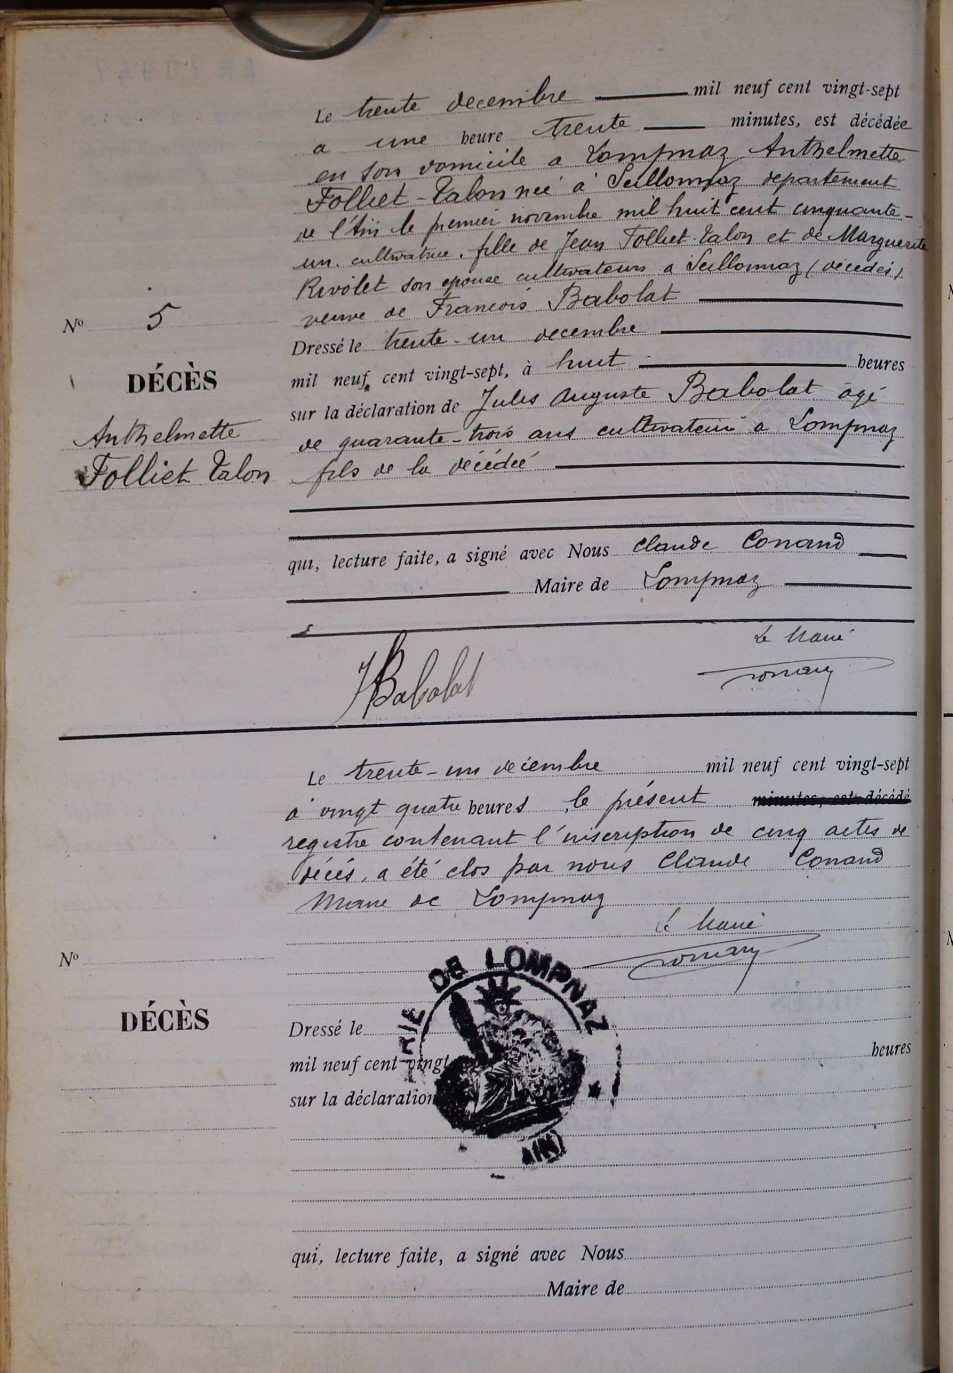 Le trente decembre mil neuf cent vingt-sept
a une heure trente minutes, est décédée
en son domicile a Lompnaz Anthelmette
Folliet-Talon née à Seillonnaz departement
de l'Ain le premier novembre mil huit cent cinquante-
un. cultivatrice. fille de Jean Folliet-Talon et de Marguerite
Rivolet son epouse cultivateurs a Seillonnaz (décédés).
veuve de Francois Babolat
Dressé le trente-un decembre
mil neuf cent vingt-sept, à huit heures
sur la déclaration de Jules Auguste Babolat âgé
de quarante-trois ans cultivateur a Lompnaz
fils de la décédée
qui, lecture faite, a signé avec Nous Claude Conand
Maire de Lompnaz
Nº 5
DÉCÈS
Anthelmette
Folliet Talon
Le Maire
JBabolat
Conand
Le trente-un decembre mil neuf cent vingt-sept
à vingt quatre heures le présent minutes, est décédé
registre contenant l'inscription de cinq actes de
décés, a été clos par nous Claude Conand
Maire de Lompnaz
Le Maire
Conand
Nº
DÉCÈS
RIE DE LOMPNAZ
(AIN)
Dressé le
mil neuf cent vingt heures
sur la déclaration
qui, lecture faite, a signé avec Nous
Maire de